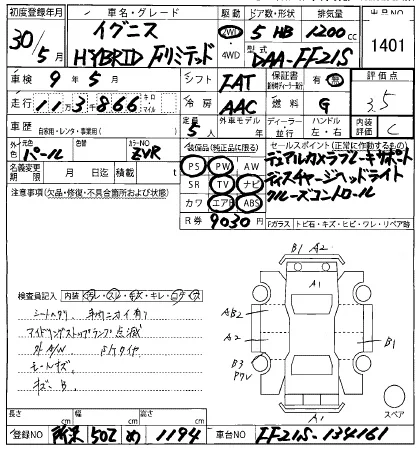 初度登録年月 車名・グレード 駆動 ドア数・形状 排気量 出品NO
30年 5月 イグニス HYBRID Fリミテッド 2WD 4WD 5 HB 1200cc 1401
型式 DAA-FF21S
車検 9年 5月 シフト FAT 保証書 有 無 評価点
走行 11万3千866 キロ マイル 冷房 AAC 燃料 G 3.5
車歴 自家用・レンタ・事業用( ) 定員 5人 外車モデル 年 ディーラー 並行 ハンドル 左・右 内装評価 C
外色 元色 パール 色替 カラーNO ZVR
装備品(純正品に限る) セールスポイント(正常に作動するもの)
PS PW AW デュアルカメラブレーキサポート
名義変更期限 月 日迄 積載 t
SR TV ナビ ディスチャージヘッドライト
注意事項(欠品・修復・不具合箇所および状態)
カワ エアB ABS クルーズコントロール
R券 9030円 Fガラス・トビ石・キズ・ヒビ・ワレ・リペア跡
B1 A2
A1
検査員記入 内装
アイドリングストップランプ点滅
AB2
A2
B1
B3
B
A1
スペア
長さ cm 幅 cm 高さ cm
登録NO 所沢 502 め 1194 車台NO FF21S-134161